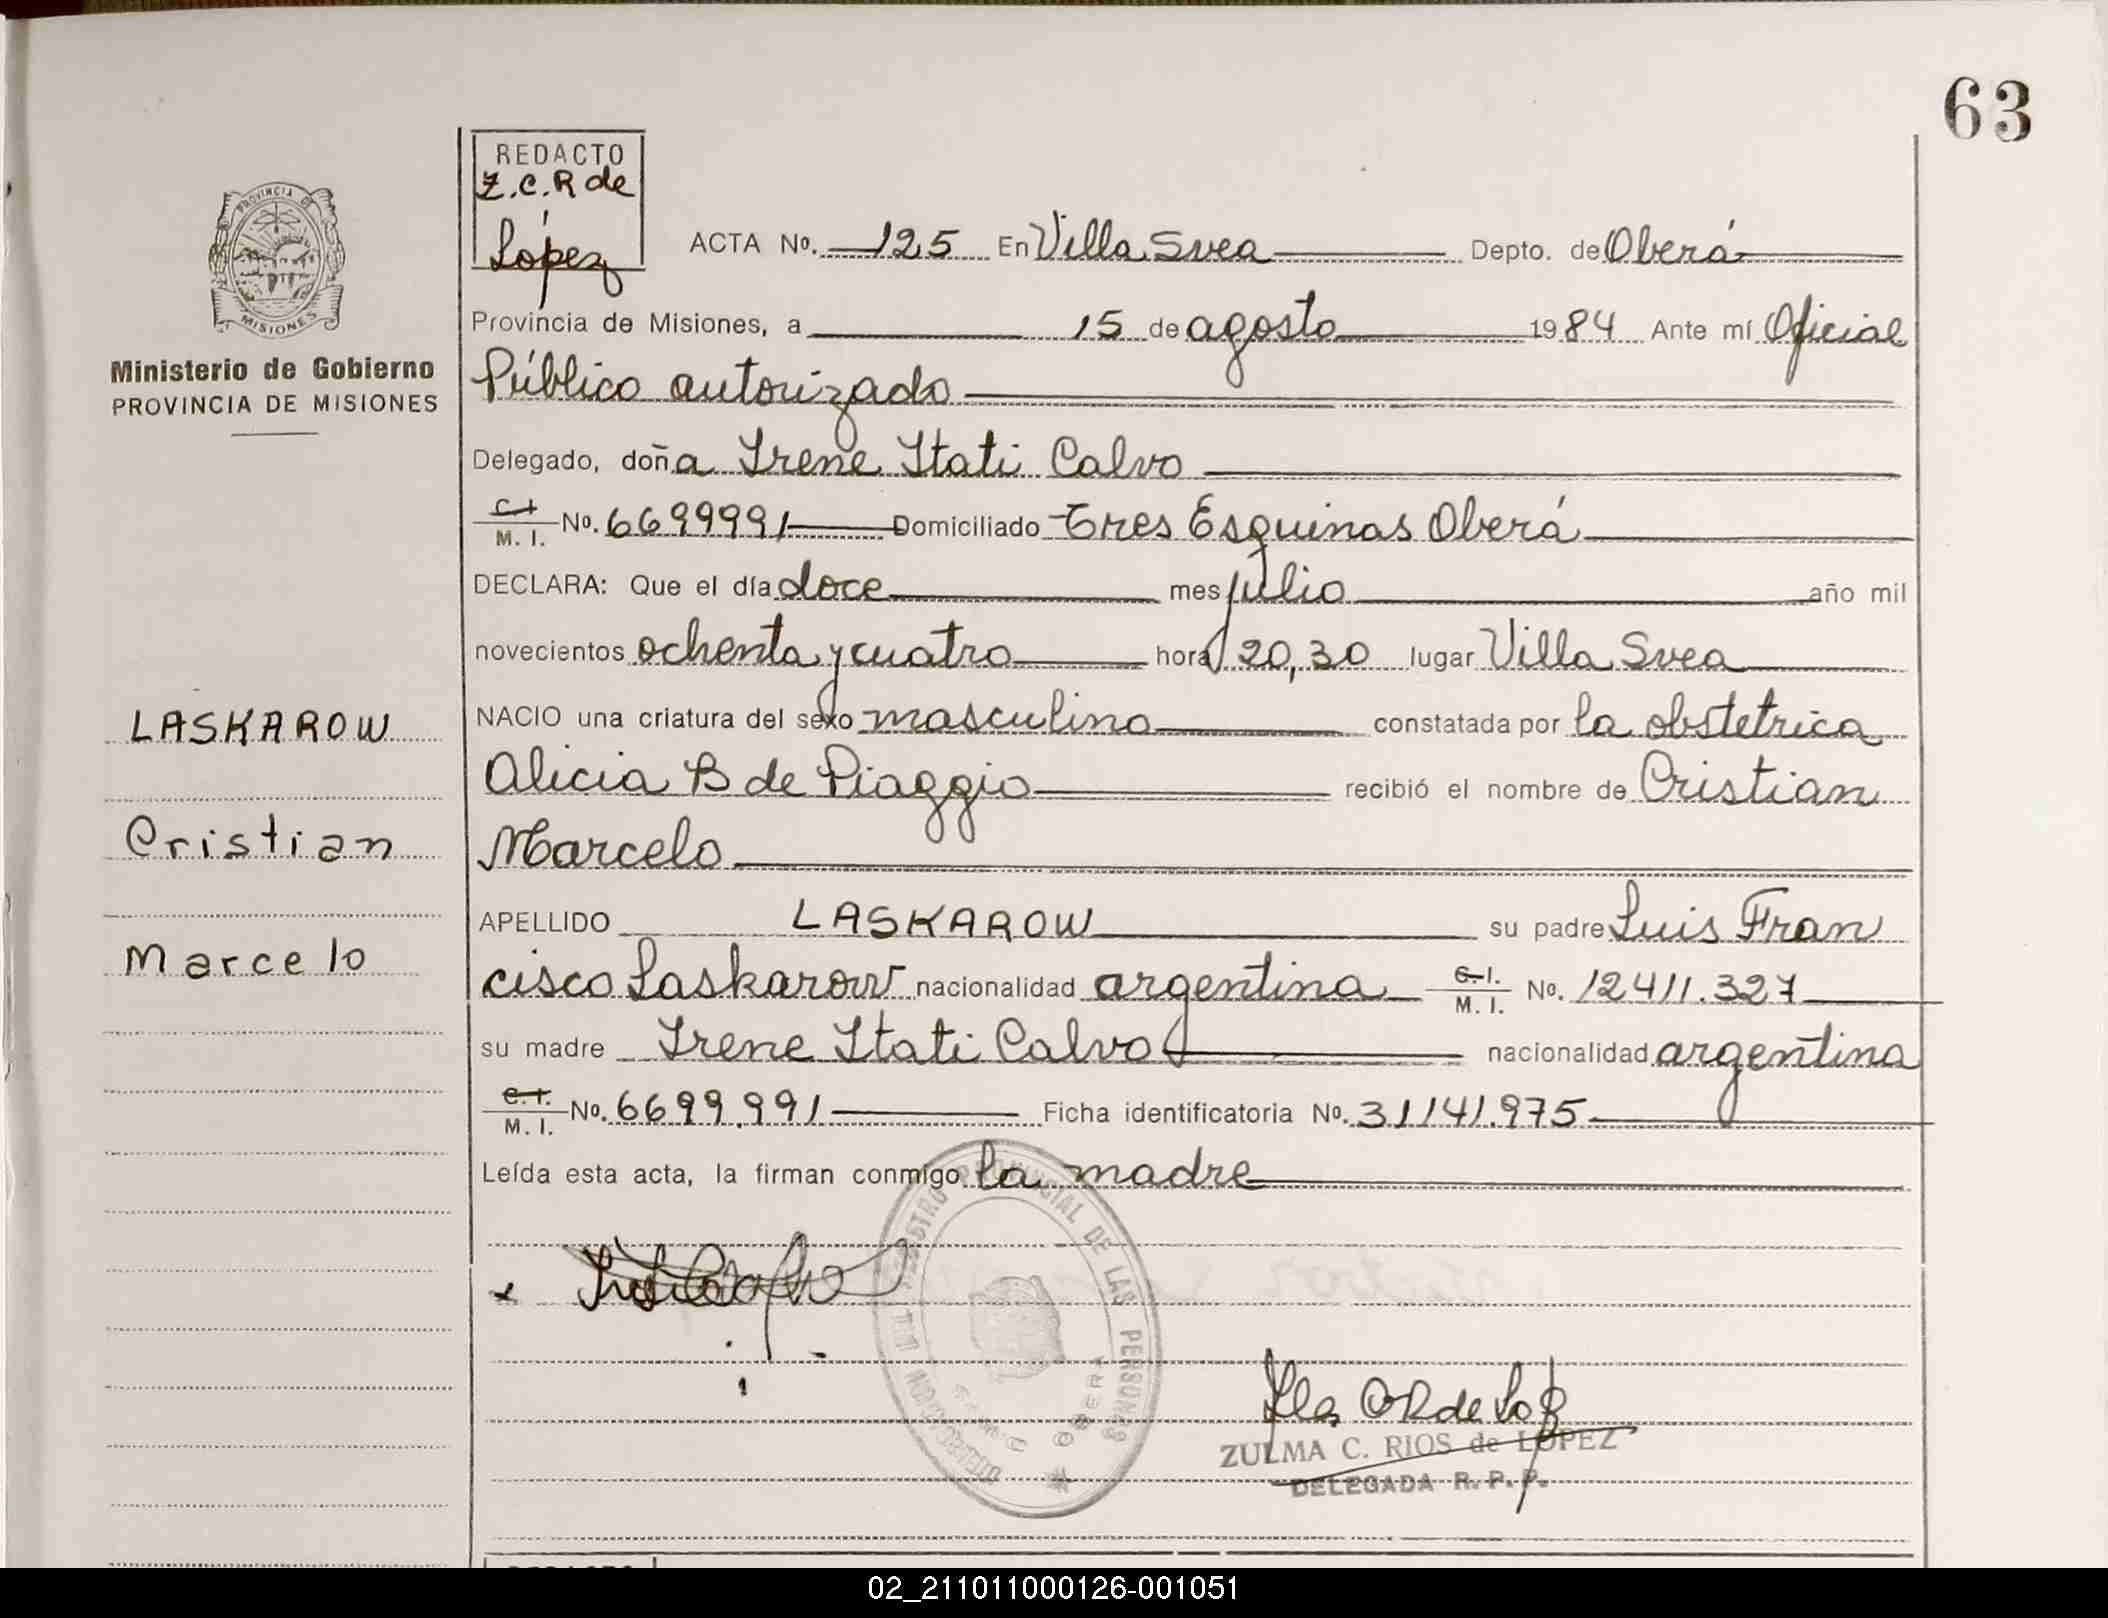 63
REDACTO
Z.C.R de
López
PROVINCIA DE
MISIONES
Ministerio de Gobierno
PROVINCIA DE MISIONES
ACTA No. 125 En Villa Svea Depto. de Oberá
Provincia de Misiones, a 15 de agosto 1984 Ante mí Oficial
Público autorizado
Delegado, doña Irene Itati Calvo
C.I. M. I. No. 6699991 Domiciliado Tres Esquinas Oberá
DECLARA: Que el día doce mes julio año mil
novecientos ochenta y cuatro hora 20,30 lugar Villa Svea
NACIO una criatura del sexo masculino constatada por la obstetrica
Alicia B de Piaggio recibió el nombre de Cristian
Marcelo
APELLIDO LASKAROW su padre Luis Fran
cisco Laskarow nacionalidad argentina C.I. M. I. No. 12411.327
su madre Irene Itati Calvo nacionalidad argentina
C.I. M. I. No. 6699.991 Ficha identificatoria No. 31141.975
Leída esta acta, la firman conmigo la madre
LASKAROW
Cristian
Marcelo
REGISTRO PROVINCIAL DE LAS PERSONAS
OBERA
ZULMA C. RIOS de LOPEZ
DELEGADA R. P. P.
02_211011000126-001051